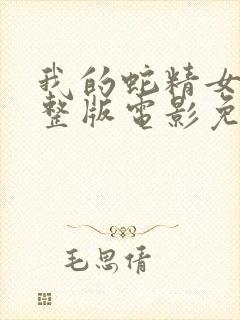 我的蛇精女
整版電影免
毛思倩